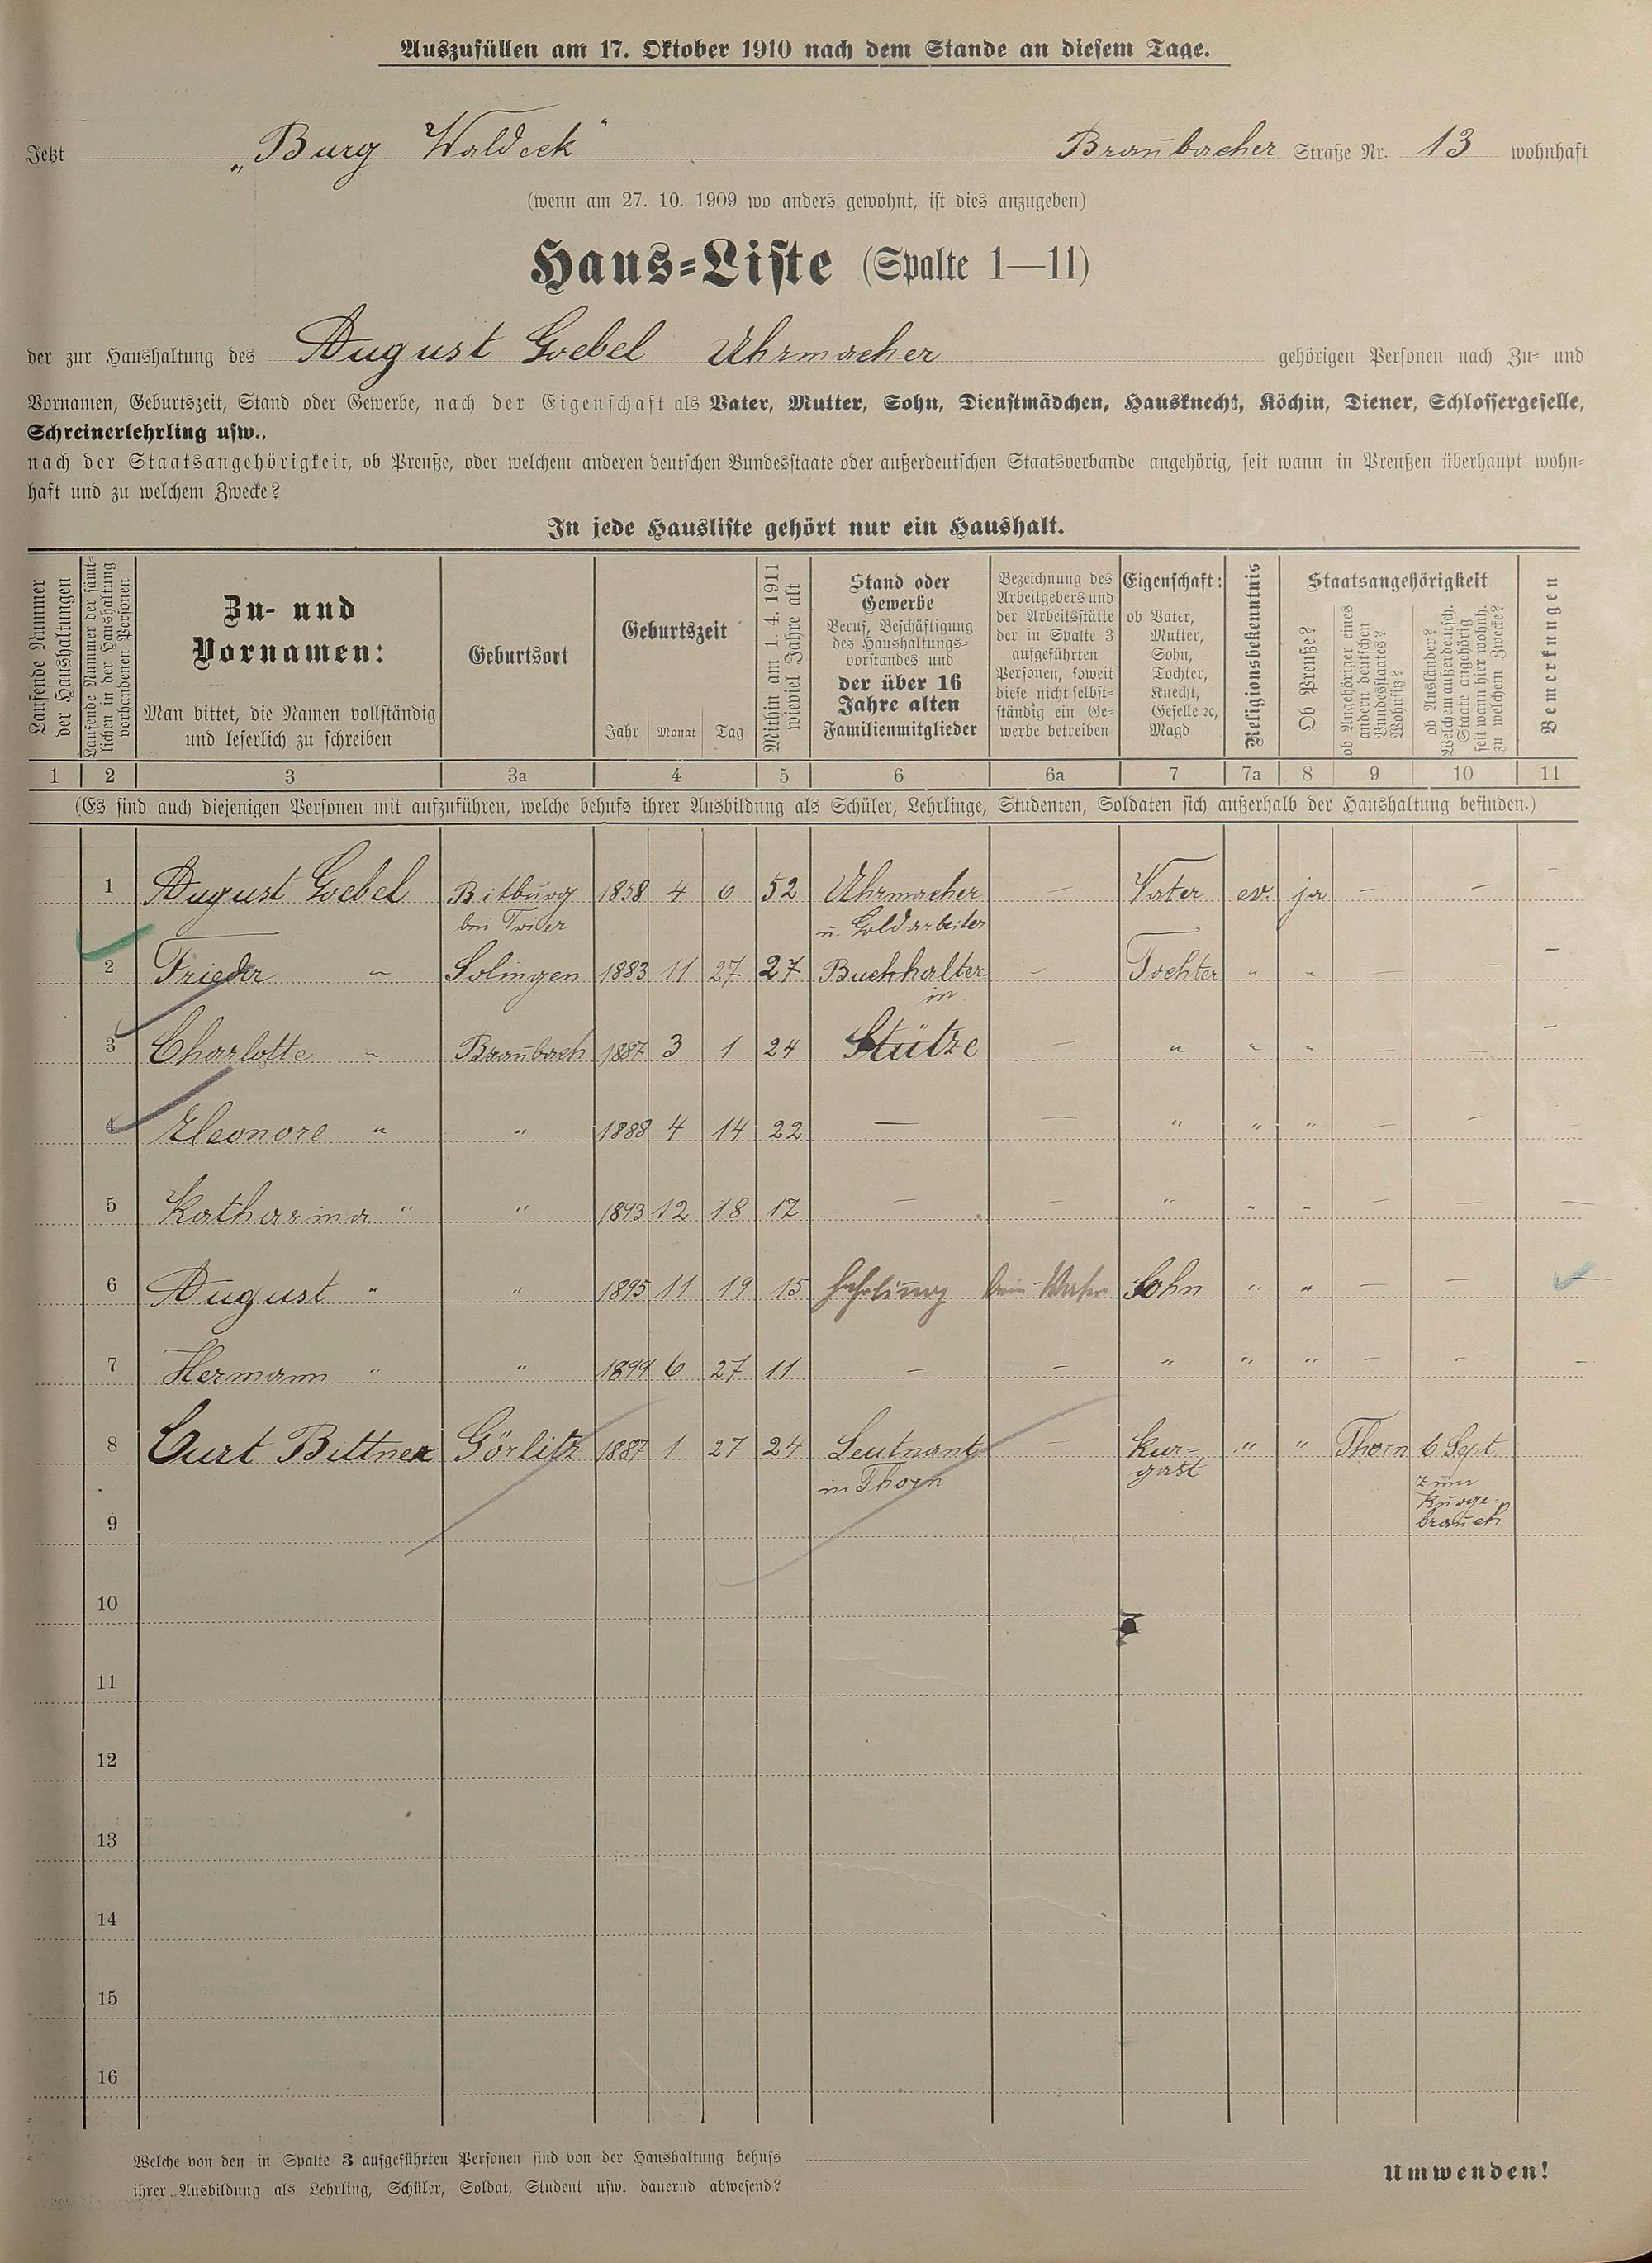 Auszufüllen am 17. Oktober 1910 nach dem Stande an diesem Tage.
Jetzt „Burg Waldeck“ Braubacher Straße Nr. 13 wohnhaft
(wenn am 27. 10. 1909 wo anders gewohnt, ist dies anzugeben)
Haus-Liste (Spalte 1—11)
der zur Haushaltung des August Goebel Uhrmacher gehörigen Personen nach Zu- und
Vornamen, Geburtszeit, Stand oder Gewerbe, nach der Eigenschaft als Vater, Mutter, Sohn, Dienstmädchen, Hausknecht, Köchin, Diener, Schlossergeselle,
Schreinerlehrling usw.,
nach der Staatsangehörigkeit, ob Preuße, oder welchem anderen deutschen Bundesstaate oder außerdeutschen Staatsverbande angehörig, seit wann in Preußen überhaupt wohn-
haft und zu welchem Zwecke?
In jede Hausliste gehört nur ein Haushalt.
Laufende Nummer
der Haushaltungen
Laufende Nummer der sämt-
lichen in der Haushaltung
vorhandenen Personen
Zu- und
Vornamen:
Man bittet, die Namen vollständig
und leserlich zu schreiben
Geburtsort
Geburtszeit
Jahr Monat Tag
Mithin am 1. 4. 1911
wieviel Jahre alt
Stand oder
Gewerbe
Beruf, Beschäftigung
des Haushaltungs-
vorstandes und
der über 16
Jahre alten
Familienmitglieder
Bezeichnung des
Arbeitgebers und
der Arbeitsstätte
der in Spalte 3
aufgeführten
Personen, soweit
diese nicht selbst-
ständig ein Ge-
werbe betreiben
Eigenschaft:
ob Vater,
Mutter,
Sohn,
Tochter,
Knecht,
Geselle ꝛc,
Magd
Religionsbekenntnis
Staatsangehörigkeit
Ob Preuße?
ob Angehöriger eines
andern deutschen
Bundesstaates?
Wohnsitz?
ob Ausländer?
Welchem außerdeutsch.
Staate angehörig
seit wann hier wohnh.
zu welchem Zwecke?
Bemerkungen
1 2 3 3a 4 5 6 6a 7 7a 8 9 10 11
(Es sind auch diejenigen Personen mit aufzuführen, welche behufs ihrer Ausbildung als Schüler, Lehrlinge, Studenten, Soldaten sich außerhalb der Haushaltung befinden.)
1 August Goebel Bitburg 1858 4 6 52 Uhrmacher — Vater ev. ja — — —
bei Trier u. Goldarbeiter
2 Frieda " Solingen 1883 11 27 27 Buchhalter — Tochter " " — — —
in
3 Charlotte " Braubach 1887 3 1 24 Stütze — " " " — — —
4 Eleonore " " 1888 4 14 22 — — " " " — —
5 Katharina " " 1893 12 18 17 — — " " " — — —
6 August " " 1895 11 19 15 Lehrling beim Vater Sohn " " — — —
7 Hermann " " 1899 6 27 11 — — " " " — — —
8 Curt Bittner Görlitz 1887 1 27 24 Leutnant — Kur- " " Thorn 6 Sept.
in Thorn gast zum
Kurge-
brauch
9
10
11
12
13
14
15
16
Welche von den in Spalte 3 aufgeführten Personen sind von der Haushaltung behufs
ihrer Ausbildung als Lehrling, Schüler, Soldat, Student usw. dauernd abwesend?
Umwenden!